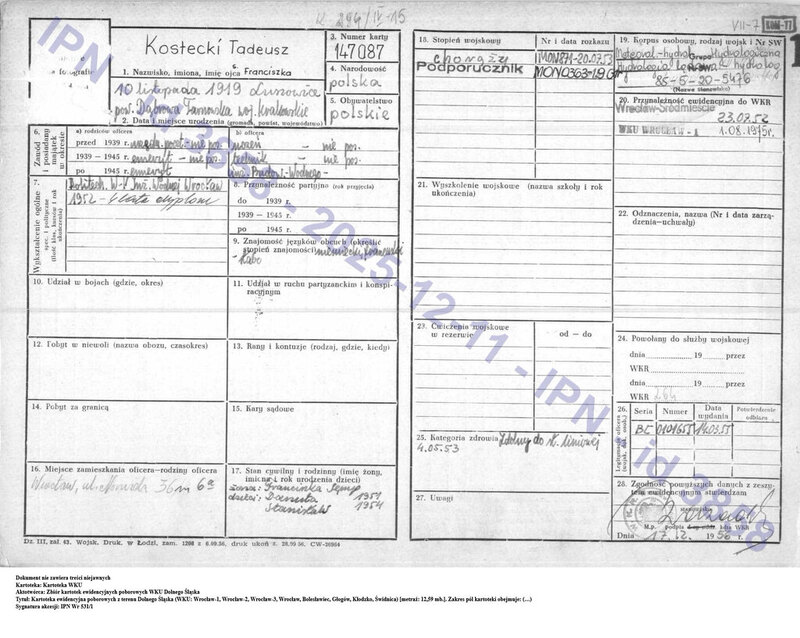 K 294/IV-15
VII-7 KOM-77
Kostecki Tadeusz
1. Nazwisko, imiona, imię ojca Franciszka
3. Numer karty
147087
4. Narodowość
polska
5. Obywatelstwo
polskie
10 listopada 1919
pow. Dąbrowa Tarnowska woj. krakowskie
2. Data i miejsce urodzenia (gromada, powiat, województwo)
6. Zawód i posiadany majątek w okresie
a) rodziców oficera
b) oficera
przed 1939 r. – nie pos. uczeń – nie pos.
1939 — 1945 r. emeryt – nie pos. technik – nie pos.
po 1945 r. emeryt
7. Wykształcenie ogólne i polityczne
Politech. W-ł Inż. Wodnej Wrocław
1952
8. Przynależność partyjna (rok przyjęcia)
do 1939 r.
1939 — 1945 r.
po 1945 r.
9. Znajomość języków obcych (określić stopień znajomości) niemiecki
słabo
10. Udział w bojach (gdzie, okres)
11. Udział w ruchu partyzanckim i konspiracyjnym
12. Pobyt w niewoli (nazwa obozu, czasokres)
13. Rany i kontuzje (rodzaj, gdzie, kiedy)
14. Pobyt za granicą
15. Kary sądowe
16. Miejsce zamieszkania oficera-rodziny oficera
Wrocław, ul. 36 m 6a
17. Stan cywilny i rodzinny (imię żony, imiona i rok urodzenia dzieci)
żona: Franciszka
dzieci: Danuta 1951
Stanisław 1954
Dz. III, zał. 43. Wojsk. Druk. w Łodzi, zam. 1208 z 6.09.56, druk ukoń z. 28.09.56. CW-26964
18. Stopień wojskowy
Nr i data rozkazu
chorąży MON 871-20.07.53
Podporucznik MON 0363
19. Korpus osobowy, rodzaj wojsk i Nr SW
Grupa Hydrologiczna
85-5-20-5476
(Nazwa stanowiska)
20. Przynależność ewidencyjna do WKR
Wrocław-Śródmieście
23.07.52
WKU WROCŁAW-1 1.08.1975r.
21. Wyszkolenie wojskowe (nazwa szkoły i rok ukończenia)
22. Odznaczenia, nazwa (Nr i data zarządzenia-uchwały)
23. Ćwiczenia wojskowe w rezerwie
od — do
24. Powołany do służby wojskowej
dnia 19 przez
WKR
dnia 19 przez
WKR
25. Kategoria zdrowia Zdolny do sł. liniowej
4.05.53
26. Legitymacja oficera
Seria Numer Data wydania Potwierdzenie odbioru
BC 0101655 14.03.55
27. Uwagi
28. Zgodność powyższych danych z zeszytem ewidencyjnym stwierdzam
M.p. Podpis
Dnia 17.12. 1956 r.
IPN - id 3858 - 2025-12-11 - IPN - id 3858
Dokument nie zawiera treści niejawnych
Kartoteka: Kartoteka WKU
Aktotwórca: Zbiór kartotek ewidencyjnych poborowych WKU Dolnego Śląska
Tytuł: Kartoteka ewidencyjna poborowych z terenu Dolnego Śląska (WKU: Wrocław-1, Wrocław-2, Wrocław-3, Wrocław, Bolesławiec, Głogów, Kłodzko, Świdnica) [metraż: 12,59 mb.]. Zakres pól kartoteki obejmuje: (...)
Sygnatura akcesji: IPN Wr 531/1